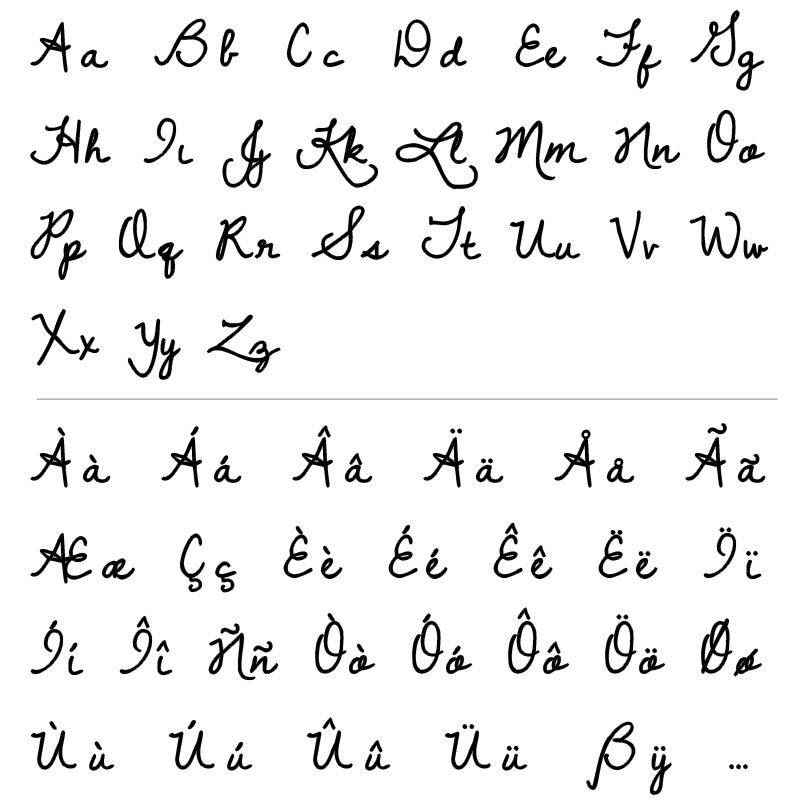 Aa Bb Cc Dd Ee Ff Gg
Hh Iı Jȷ Kk Ll Mm Nn Oo
Pp Qq Rr Ss Tt Uu Vv Ww
Xx Yy Zz
Àà Áá Ââ Ää Åå Ãã
Ææ Çç Èè Éé Êê Ëë Ïï
Íí Îî Ññ Òò Óó Ôô Öö Øø
Ùù Úú Ûû Üü ßÿ ...